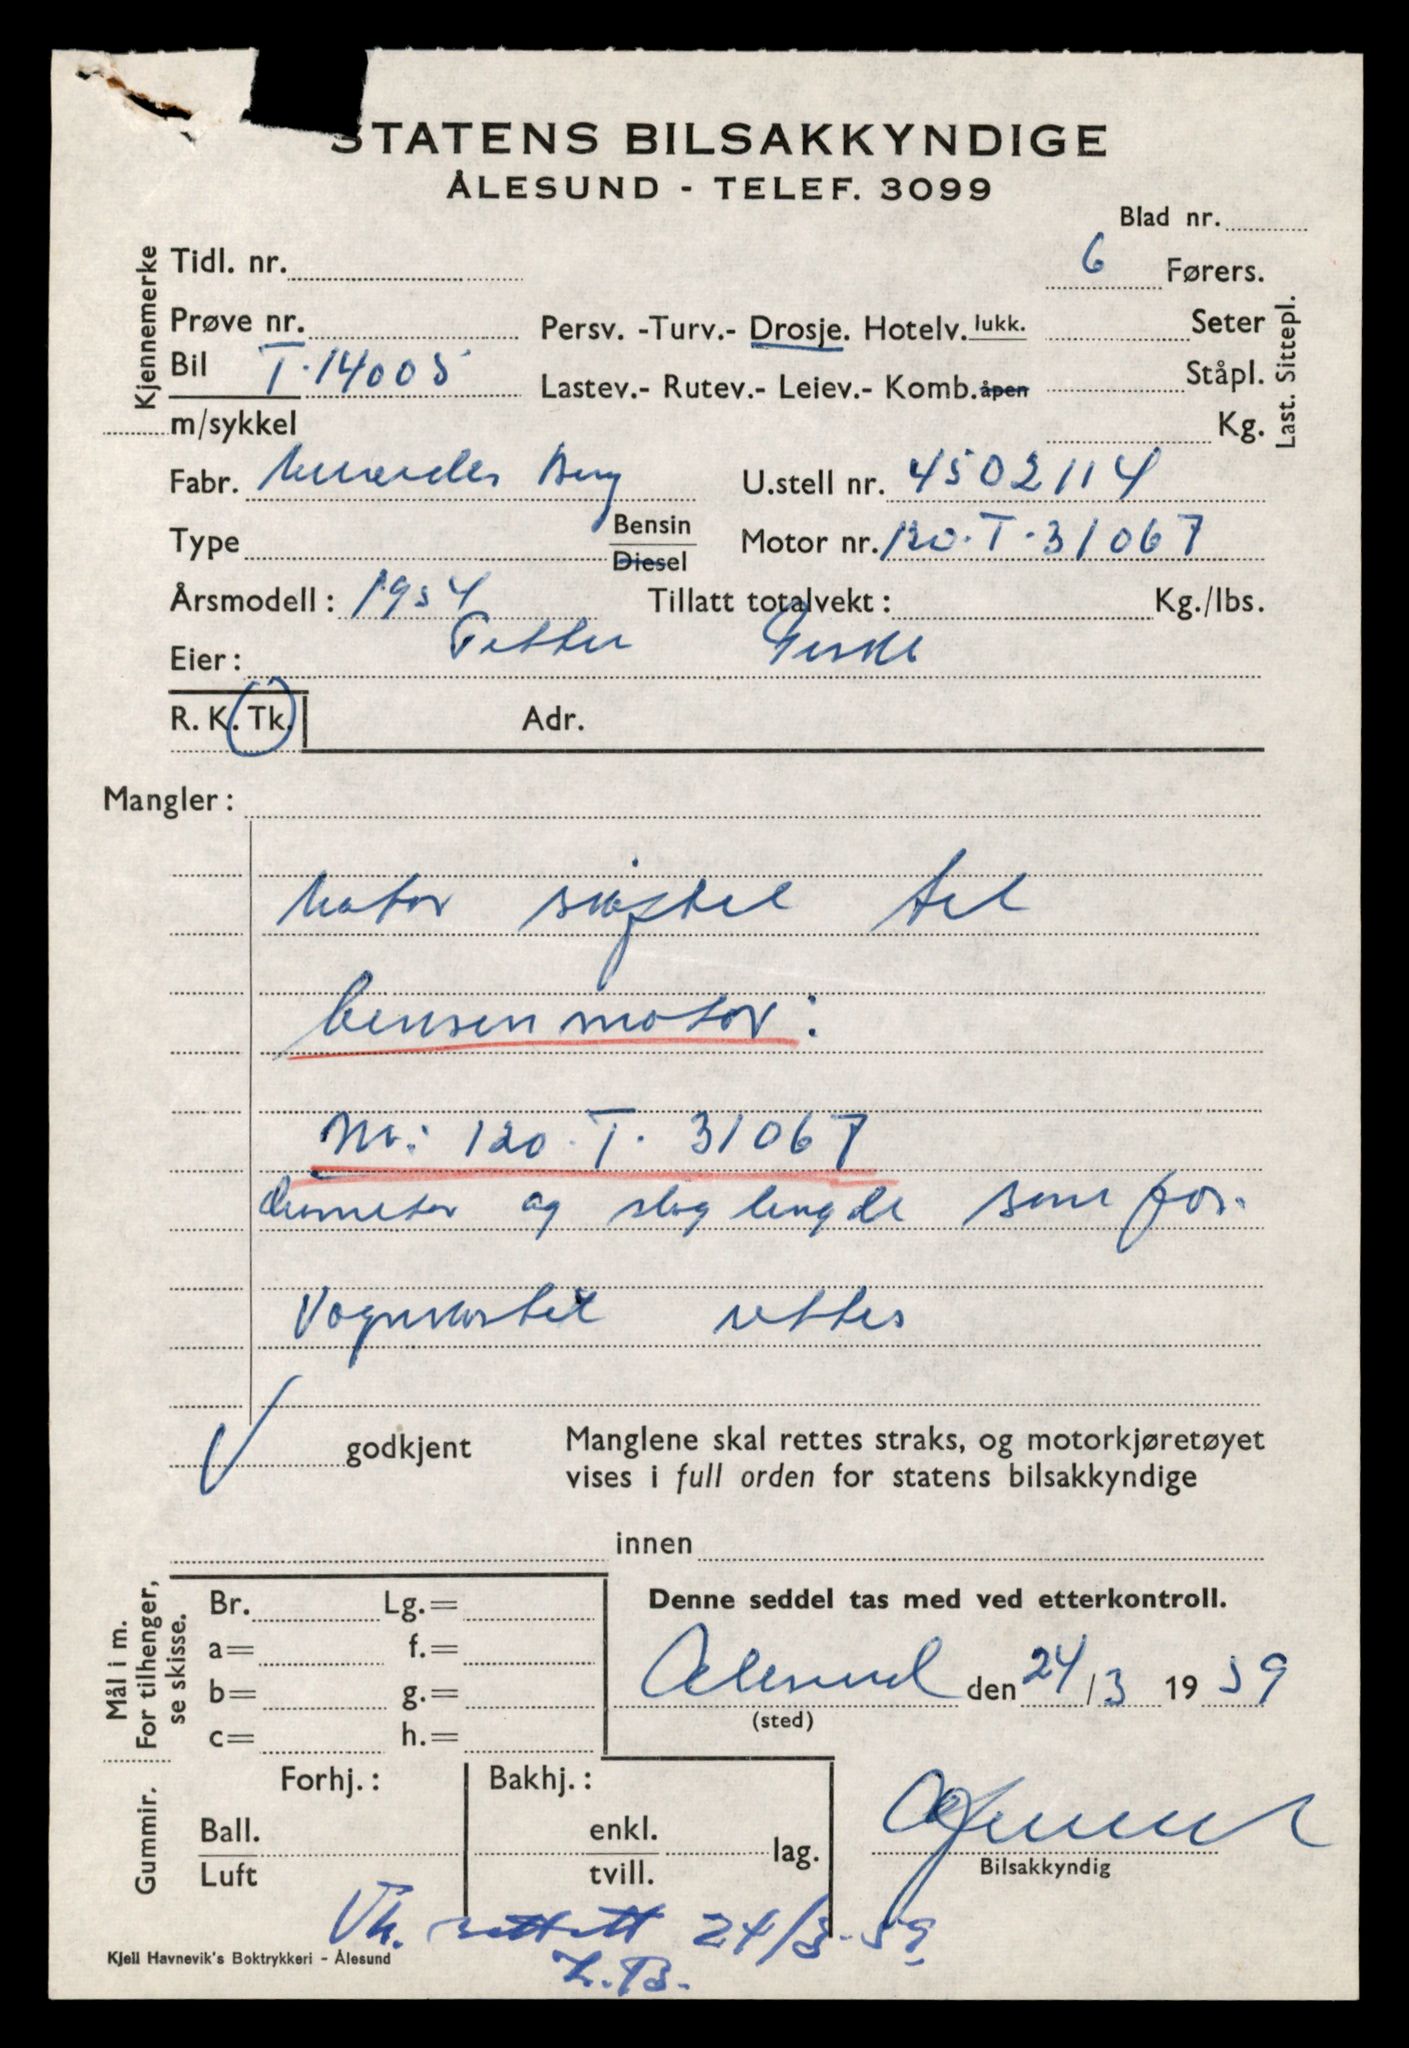 STATENS BILSAKKYNDIGE
ÅLESUND - TELEF. 3099
Blad nr.
Kjennemerke
Tidl. nr.
6 Førers.
Prøve nr.
Persv. -Turv.- Drosje. Hotelv. lukk.
Seter
Bil T-14005
Lastev.- Rutev.- Leiev.- Komb. åpen
Ståpl.
m/sykkel
Kg.
Last. Sittepl.
Fabr. Mercedes Benz
U.stell nr. 4502114
Type
Bensin
Diesel
Motor nr. 120.T.31067
Årsmodell: 1954
Tillatt totalvekt: Kg./lbs.
Eier: Petter
R. K. Tk.
Adr.
Mangler:
Motor skiftet til
bensinmotor:
Nr.: 120.T.31067
Diameter og slaglengde som før.
Vognkortet rettes
√ godkjent
Manglene skal rettes straks, og motorkjøretøyet
vises i full orden for statens bilsakkyndige
innen
Mål i m.
For tilhenger,
se skisse.
Br. Lg.=
a= f.=
b= g.=
c= h.=
Denne seddel tas med ved etterkontroll.
Ålesund den 24/3 1959
(sted)
Gummir.
Forhj.:
Bakhj.:
Ball.
Luft
enkl.
tvill.
lag.
Bilsakkyndig
Vk. rettett 24/3-59
Kjell Havnevik's Boktrykkeri - Ålesund